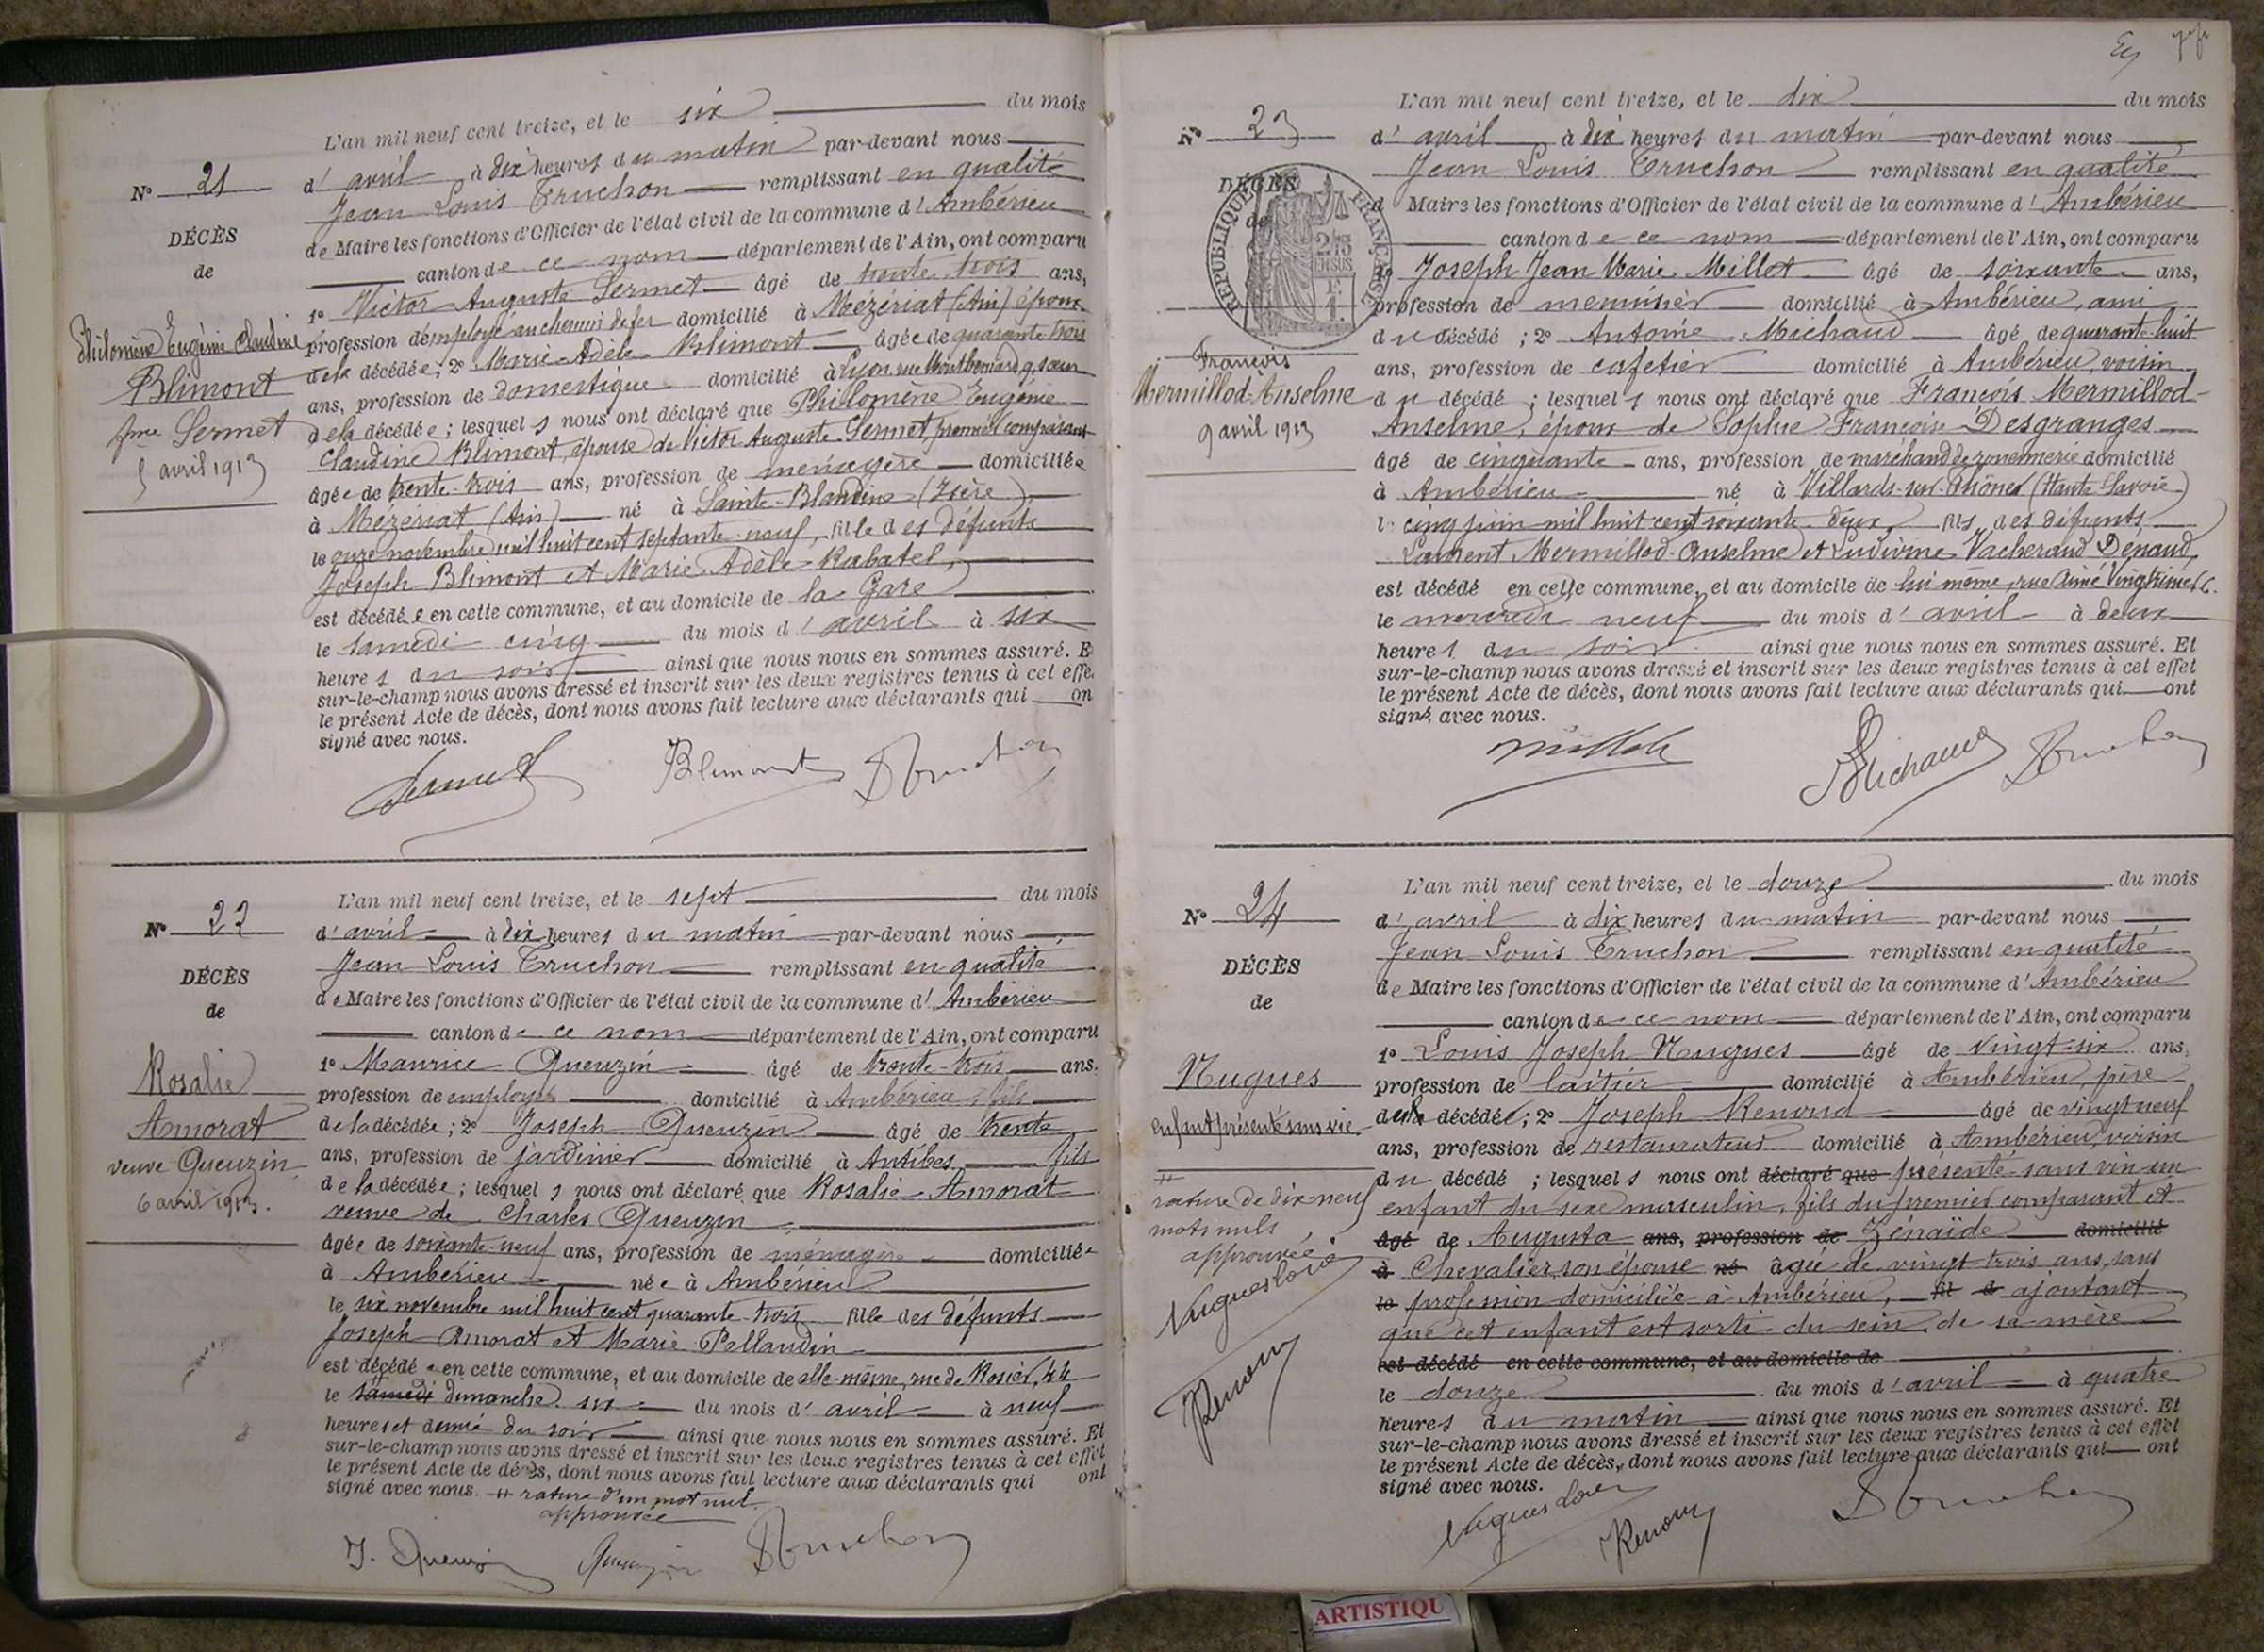 L'an mil neuf cent treize, et le six du mois
N° 21
d'avril à dix heures du matin par-devant nous
Jean Louis Truchon remplissant en qualité
DÉCÈS
de
de Maire les fonctions d'Officier de l'état civil de la commune d'Ambérieu
canton de ce nom département de l'Ain, ont comparu
1° Victor Auguste Sermet âgé de trente trois ans,
profession d'employé au chemin de fer domicilié à Mézériat (Ain) époux
Philomène Eugénie Claudine
Blimont
fme Sermet
5 avril 1913
de la décédée; 2° Marie-Adèle Blimont âgée de quarante trois
ans, profession de domestique domicilié à Lyon rue Montbernard 9, sœur
de la décédée; lesquels nous ont déclaré que Philomène Eugénie
Claudine Blimont, épouse de Victor Auguste Sermet, premier comparant
âgée de trente-trois ans, profession de ménagère domiciliée
à Mézériat (Ain) né à Sainte-Blandine (Isère)
le onze novembre mil huit cent septante-neuf, fille des défunts
Joseph Blimont et Marie Adèle Rabatel,
est décédée en cette commune, et au domicile de la Gare
le samedi cinq du mois d'avril à six
heures du soir ainsi que nous nous en sommes assuré. E
sur-le-champ nous avons dressé et inscrit sur les deux registres tenus à cet effe
le présent Acte de décès, dont nous avons fait lecture aux déclarants qui on
signé avec nous.
Sermet Blimont Truchon
L'an mil neuf cent treize, et le sept du mois
N° 22
d'avril à dix heures du matin par-devant nous
Jean Louis Truchon remplissant en qualité
DÉCÈS
de
de Maire les fonctions d'Officier de l'état civil de la commune d'Ambérieu
canton de ce nom département de l'Ain, ont comparu
1° Maurice Queuzin âgé de trente-trois ans.
Rosalie
Amorat
veuve Queuzin
6 avril 1913.
profession de employé domicilié à Ambérieu, fils
de la décédée; 2° Joseph Queuzin âgé de trente
ans, profession de jardinier domicilié à Antibes, fils
de la décédée; lesquels nous ont déclaré que Rosalie Amorat
veuve de Charles Queuzin
âgée de soixante-neuf ans, profession de ménagère domiciliée
à Ambérieu née à Ambérieu
le six novembre mil huit cent quarante-trois fille des défunts
Joseph Amorat et Marie Pellaudin
est décédée en cette commune, et au domicile de elle-même, rue de Rosier, 44
le samedi dimanche six du mois d'avril à neuf
heures et demie du soir ainsi que nous nous en sommes assuré. Et
sur-le-champ nous avons dressé et inscrit sur les deux registres tenus à cet effet
le présent Acte de décès, dont nous avons fait lecture aux déclarants qui ont
signé avec nous. rature d'un mot nul
approuvée
J. Queuzin Queuzin Truchon
L'an mil neuf cent treize, et le dix du mois
N° 23
d'avril à dix heures du matin par-devant nous
Jean Louis Truchon remplissant en qualité
DÉCÈS
de
RÉPUBLIQUE FRANÇAISE
2/10 EN SUS
d Maire les fonctions d'Officier de l'état civil de la commune d'Ambérieu
canton de ce nom département de l'Ain, ont comparu
1° Joseph Jean Marie Millot âgé de soixante ans,
profession de menuisier domicilié à Ambérieu, ami
du décédé; 2° Antoine Michaud âgé de quarante-huit
François
Mermillod-Anselme
9 avril 1913
ans, profession de cafetier domicilié à Ambérieu, voisin
du décédé; lesquels nous ont déclaré que François Mermillod-
Anselme, époux de Sophie Françoise Desgranges
âgé de cinquante ans, profession de marchand de rouennerie domicilié
à Ambérieu né à Villards-sur-Thônes (Haute Savoie)
l. cinq juin mil huit cent soixante-deux, fils des défunts
Laurent Mermillod-Anselme et Ludivine Vacherand Denand,
est décédé en cette commune, et au domicile de lui même, rue Aimé Vingtrinier, 6.
le mercredi neuf du mois d'avril à deux
heures du soir ainsi que nous nous en sommes assuré. Et
sur-le-champ nous avons dressé et inscrit sur les deux registres tenus à cet effet
le présent Acte de décès, dont nous avons fait lecture aux déclarants qui ont
signé avec nous.
Millot Michaud Truchon
L'an mil neuf cent treize, et le douze du mois
N° 24
d'avril à dix heures du matin par-devant nous
Jean Louis Truchon remplissant en qualité
DÉCÈS
de
de Maire les fonctions d'Officier de l'état civil de la commune d'Ambérieu
canton de ce nom département de l'Ain, ont comparu
1° Louis Joseph Nugues âgé de vingt-six ans,
Nugues
enfant présenté sans vie
profession de laitier domicilié à Ambérieu, père
du décédé; 2° Joseph Renoud âgé de vingt neuf
ans, profession de restaurateur domicilié à Ambérieu, voisin
du décédé; lesquels nous ont déclaré que présenté sans vie un
rature de dix-neuf
mots nuls
approuvée
Nugues Louis
Renoud
enfant du sexe masculin, fils du premier comparant et
âgé de Augusta ans, profession de Zénaïde domicilié
à Chevalier, son épouse né âgée de vingt-trois ans, sans
le profession domiciliée à Ambérieu, fil d ajoutant
que cet enfant est sorti du sein de sa mère
est décédé en cette commune, et au domicile de
le douze du mois d'avril à quatre
heures du matin ainsi que nous nous en sommes assuré. Et
sur-le-champ nous avons dressé et inscrit sur les deux registres tenus à cet effet
le présent Acte de décès, dont nous avons fait lecture aux déclarants qui ont
signé avec nous.
Nugues Louis Renoud Truchon
ARTISTIQU